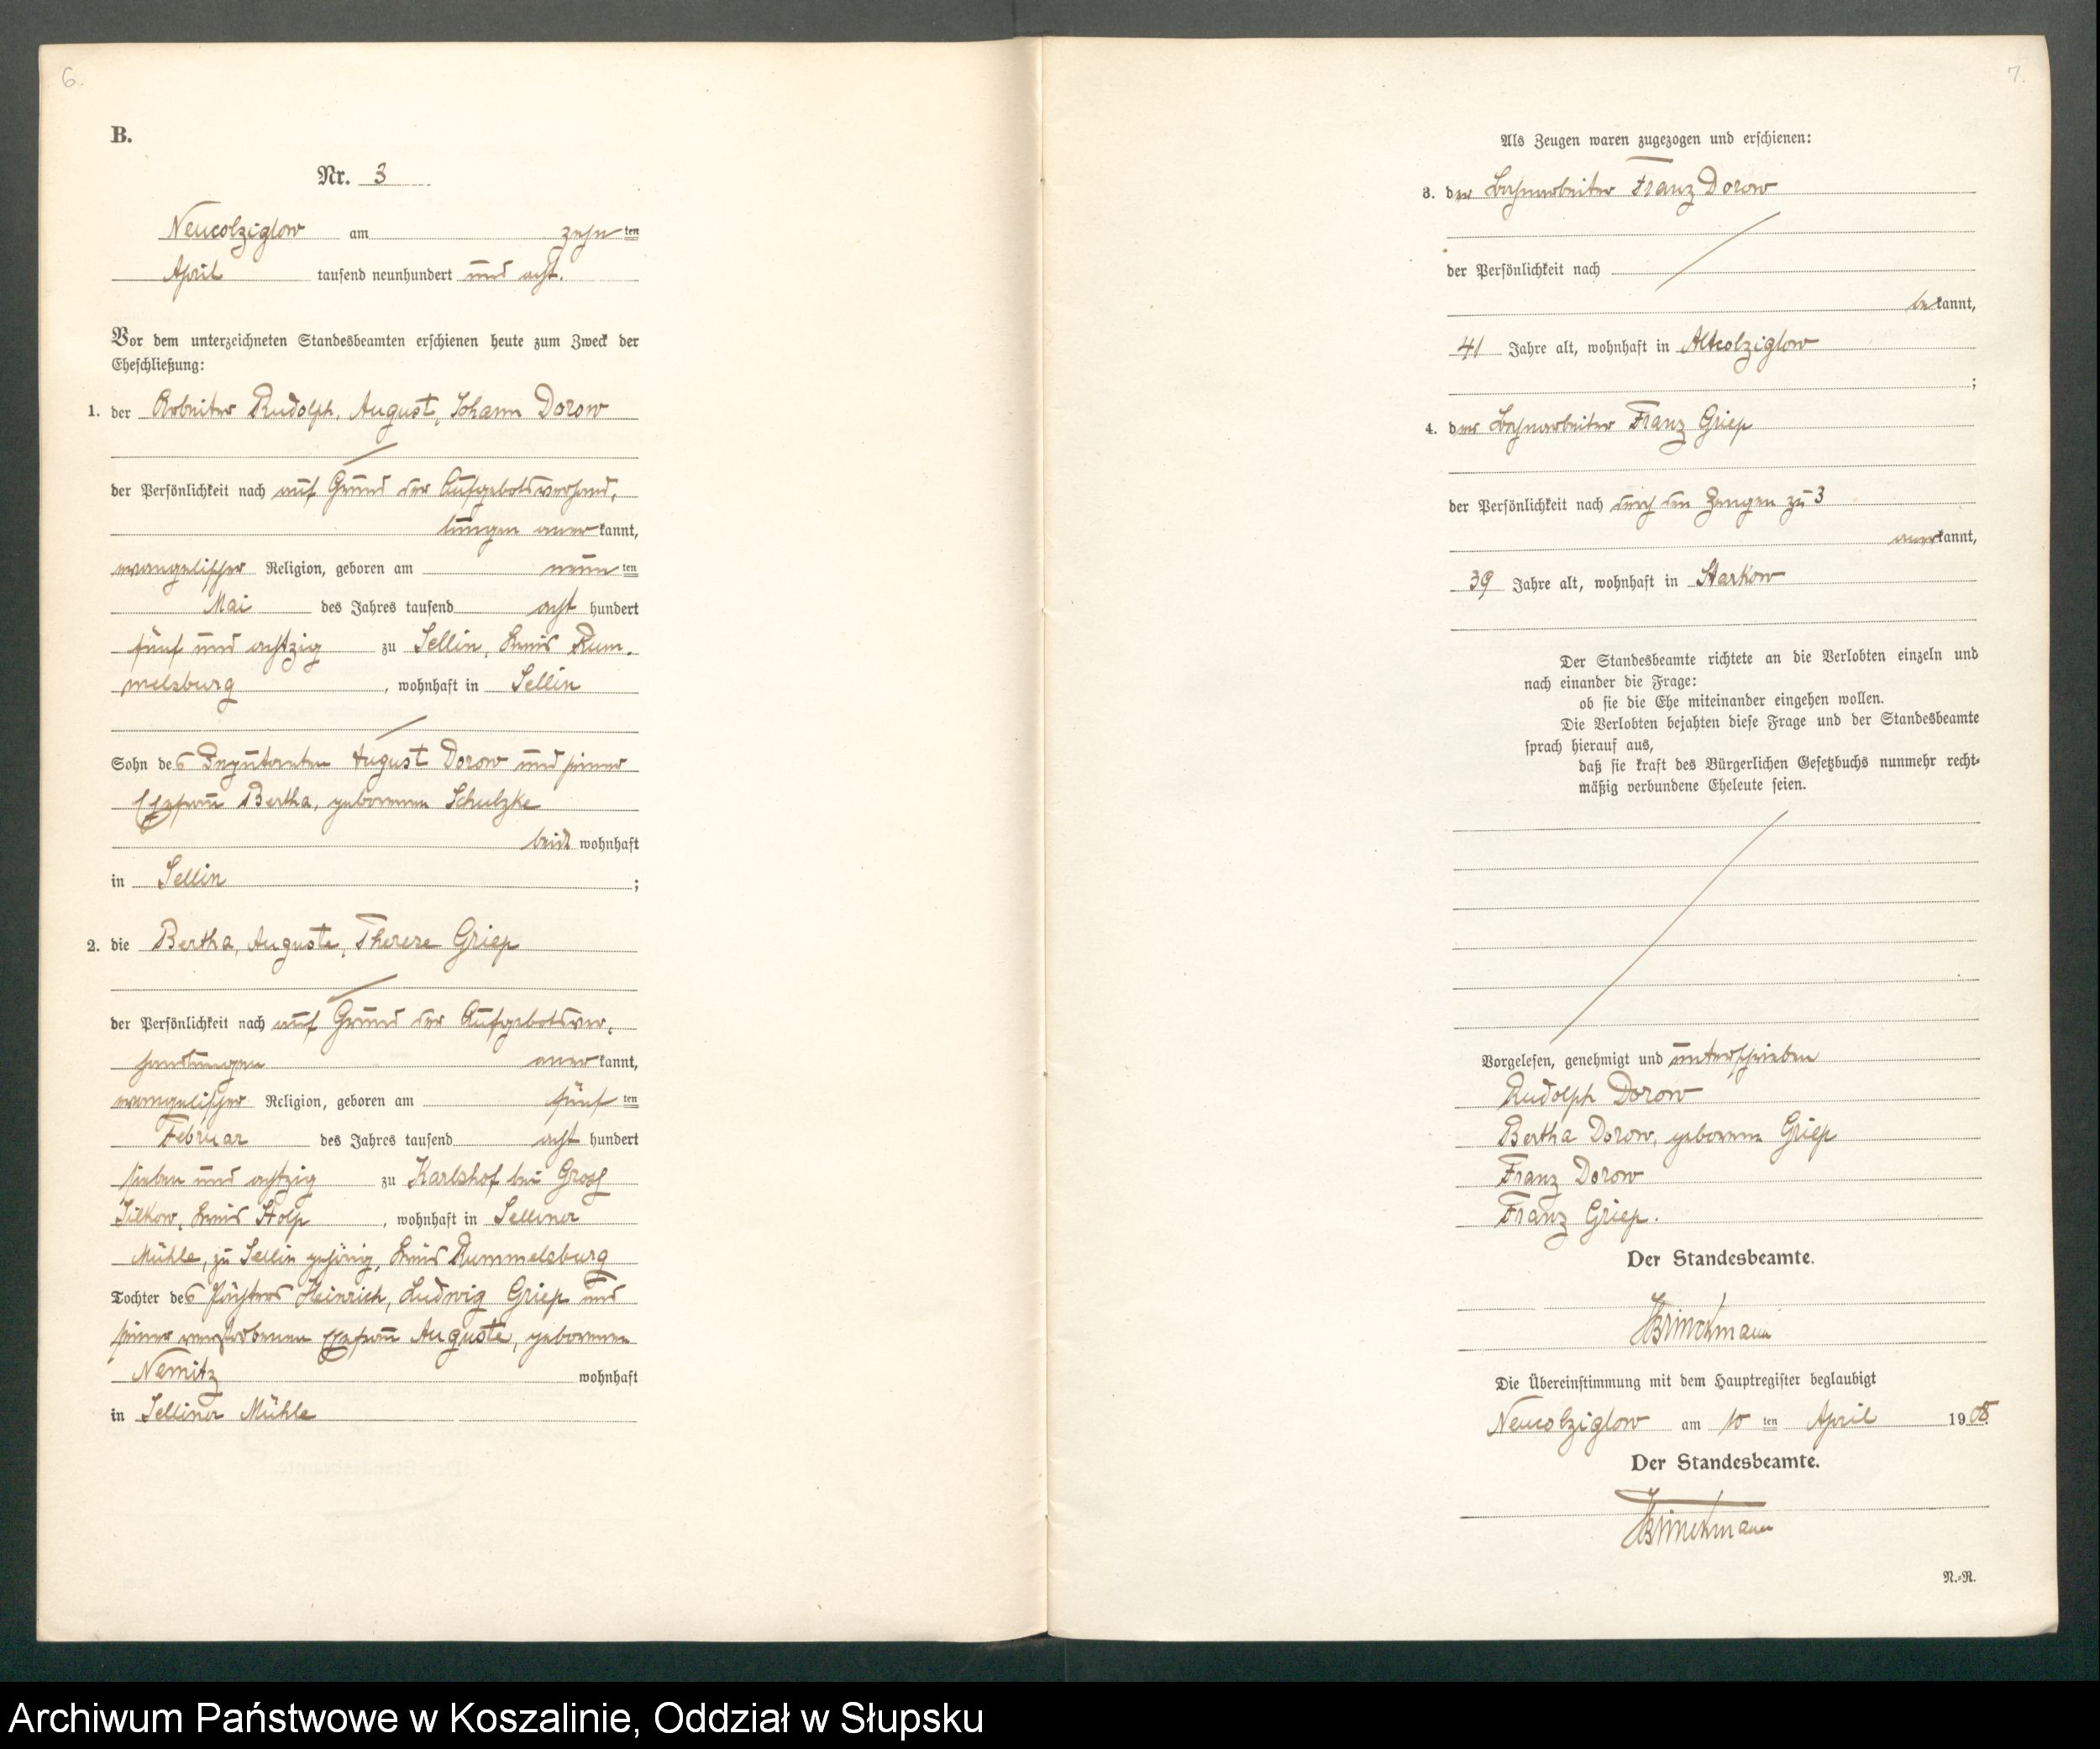 6.
B.
Nr. 3
Neucolziglow am zehn ten
April tausend neunhundert und acht.
Vor dem unterzeichneten Standesbeamten erschienen heute zum Zweck der
Eheschließung:
1. der Arbeiter Rudolph, August, Johann Dorow
der Persönlichkeit nach auf Grund der Aufgebotsverhand,
lungen anerkannt,
evangelischer Religion, geboren am neun ten
Mai des Jahres tausend acht hundert
fünf und achtzig zu Sellin, Kreis Rum,
melsburg, wohnhaft in Sellin
Sohn des Deputanten August Dorow und seiner
Ehefrau Bertha, geborenen Schulzke
beide wohnhaft
in Sellin ;
2. die Bertha, Auguste, Therese Griep
der Persönlichkeit nach auf Grund der Aufgebotsver,
handlungen anerkannt,
evangelischer Religion, geboren am fünf ten
Februar des Jahres tausend acht hundert
sieben und achtzig zu Karlshof bei Groß
Silkow, Kreis Stolp, wohnhaft in Selliner
Mühle, zu Sellin gehörig, Kreis Rummelsburg
Tochter des Försters Heinrich, Ludwig Griep und
seiner verstorbenen Ehefrau Auguste, geborenen
Nemitz wohnhaft
in Selliner Mühle
7.
Als Zeugen waren zugezogen und erschienen:
3. der Bahnarbeiter Franz Dorow
der Persönlichkeit nach
bekannt,
41 Jahre alt, wohnhaft in Altcolziglow
;
4. der Bahnarbeiter Franz Griep
der Persönlichkeit nach durch den Zeugen zu 3
anerkannt,
39 Jahre alt, wohnhaft in Starkow
Der Standesbeamte richtete an die Verlobten einzeln und
nach einander die Frage:
ob sie die Ehe miteinander eingehen wollen.
Die Verlobten bejahten diese Frage und der Standesbeamte
sprach hierauf aus,
daß sie kraft des Bürgerlichen Gesetzbuchs nunmehr recht-
mäßig verbundene Eheleute seien.
Vorgelesen, genehmigt und unterschrieben
Rudolph Dorow
Bertha Dorow, geborene Griep
Franz Dorow
Franz Griep.
Der Standesbeamte.
Brinckmann
Die Übereinstimmung mit dem Hauptregister beglaubigt
Neucolziglow am 10 ten April 1908.
Der Standesbeamte.
Brinckmann
N.-R.
Archiwum Państwowe w Koszalinie, Oddział w Słupsku